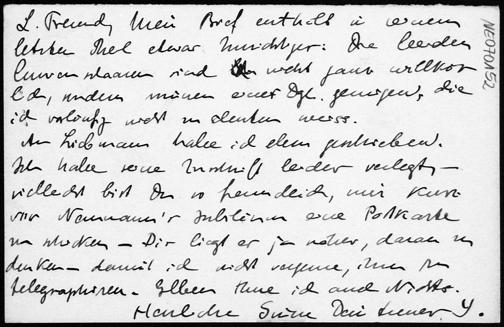 L. Freund, Mein Brief enthält in seinem
letzten Theil etwas Unrichtiges: Die beiden
sind nicht ganz willkür
lich, sondern müssen einer Dgl. genügen, die
ich vorläufig nicht zu deuten weiss.
An habe ich eben geschrieben.
Ich habe seine Zuschrift leider verlegt –
vielleicht bist Du so freundlich, mir kurz
vor Neumann's Jubiläum eine Postkarte
zu schicken – Dir liegt es ja näher, daran zu
denken – damit ich nicht vergesse, ihm zu
telegraphiren. Ebben thue ich auch Nichts.
Herzliche Grüsse Dein treuer Y.
NE070A152